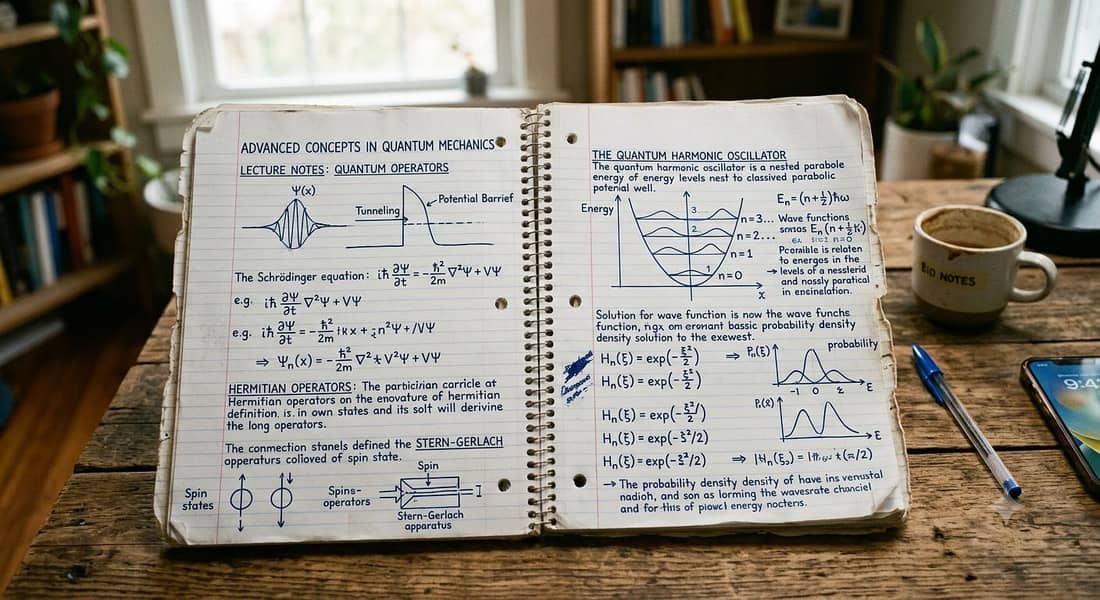 ADVANCED CONCEPTS IN QUANTUM MECHANICS
LECTURE NOTES: QUANTUM OPERATORS
Ψ(x)
Tunneling
Potential Barrief
The Schrödinger equation: iħ ∂Ψ/∂t = -ħ²/2m ∇²Ψ + VΨ
e.g. iħ ∂Ψ/∂t ∇²Ψ + VΨ
e.g. iħ ∂Ψ/∂t = -ħ²/2m
⇒ Ψn(x) = -ħ²/2m ∇² + V²Ψ + VΨ
HERMITIAN OPERATORS: The particirian carricle at
Hermitian operators on the enovature of hermitian
definition. is. in own states and its solt will derivine
the long operators.
The conmection stanels defined the STERN-GERLACH
apperaturs colloved of spin state.
Spin
states
Spins-
operators
Spin
Stern-Gerlach
apparatus
THE QUANTUM HARMONIC OSCILLATOR
The quantum harmonic oscillator is a nested parabole
energy of energy levels nest to classived parabolic
potenial well.
Energy
3...
2..
1
n=3...
n=2...
n=1
n=0
x
En = (n+½)ħω
Wave functions
En(n+½
Pcoraible is relaten
to energies in the
→ levels of a nesslerid
and nossly paratical
in eneinelation.
Solution for wave function is now the wave funchs
function, omeronant bassic probability density
density solution to the exewest.
Hn(ξ) = exp(-ξ²/2) ⇒ Pn(ξ)
probability
-1 0 2 E
Hn(ξ) = exp(-ξ²/2)
Hn(ξ) = exp(-ξ²/2)
E
Hn(ξ) = exp(-ξ²/2)
Hn(ξ) = exp(-ξ²/2) ⇒
→ The probability density density of have ins venustal
nadioh, and son as lorming the wavesrate chanciel
and for this of piowcl energy nocters.
NOTES
9:4